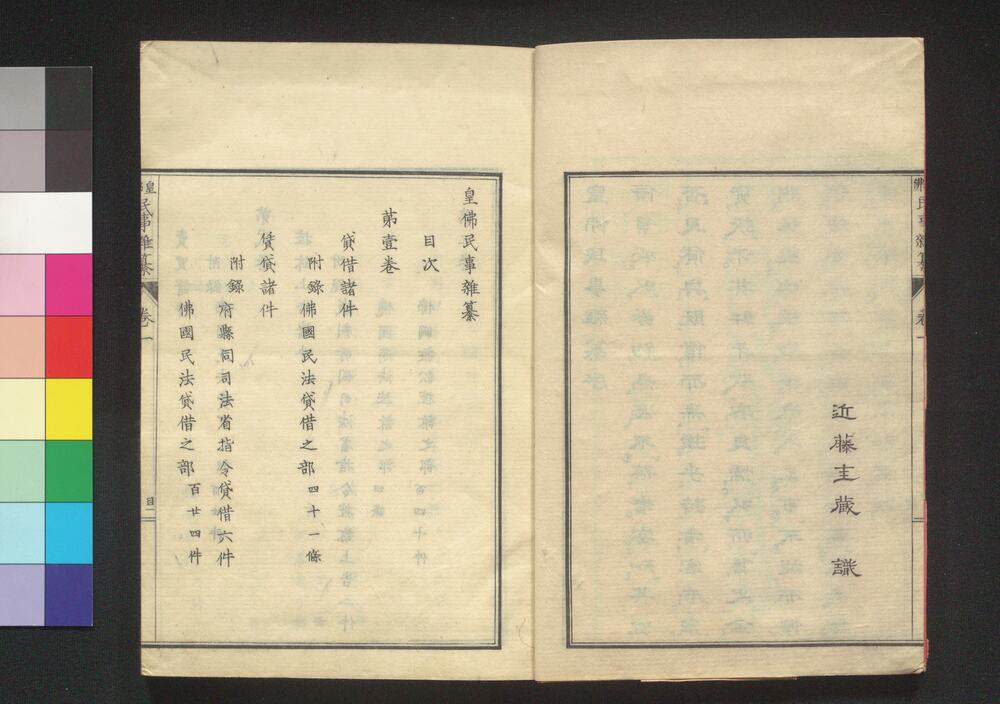 近藤圭蔵 譔
皇佛民事雜纂
目次
苐壹卷
貸借諸件
附錄佛國民法貸借之部四十一條
賃貸諸件
附錄府縣同司法省指令貸借六件
佛國民法貸借之部百廿四件
民事雜纂 卷一
目一